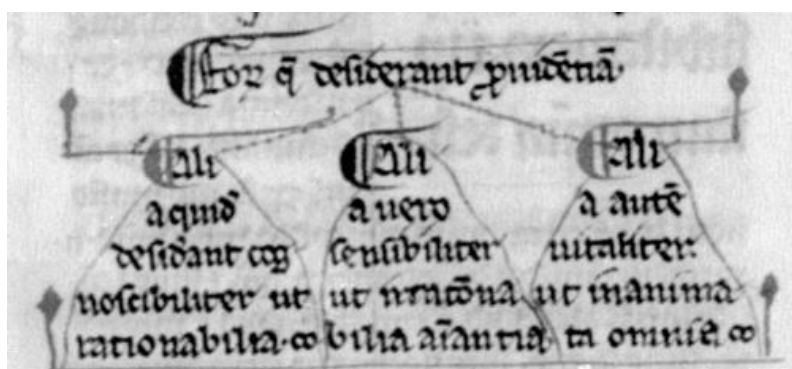 Eoꝝ q̄ desiderant ꝓuidētiā.
Ali
a quid̄
desid̄ant cog
noscibiliter ut
rationabilia.
Ali
a uero
sensibiliter
ut irratōna
bilia aīantia.
Ali
a autē
uitaliter.
ut inanima
ta omnia.